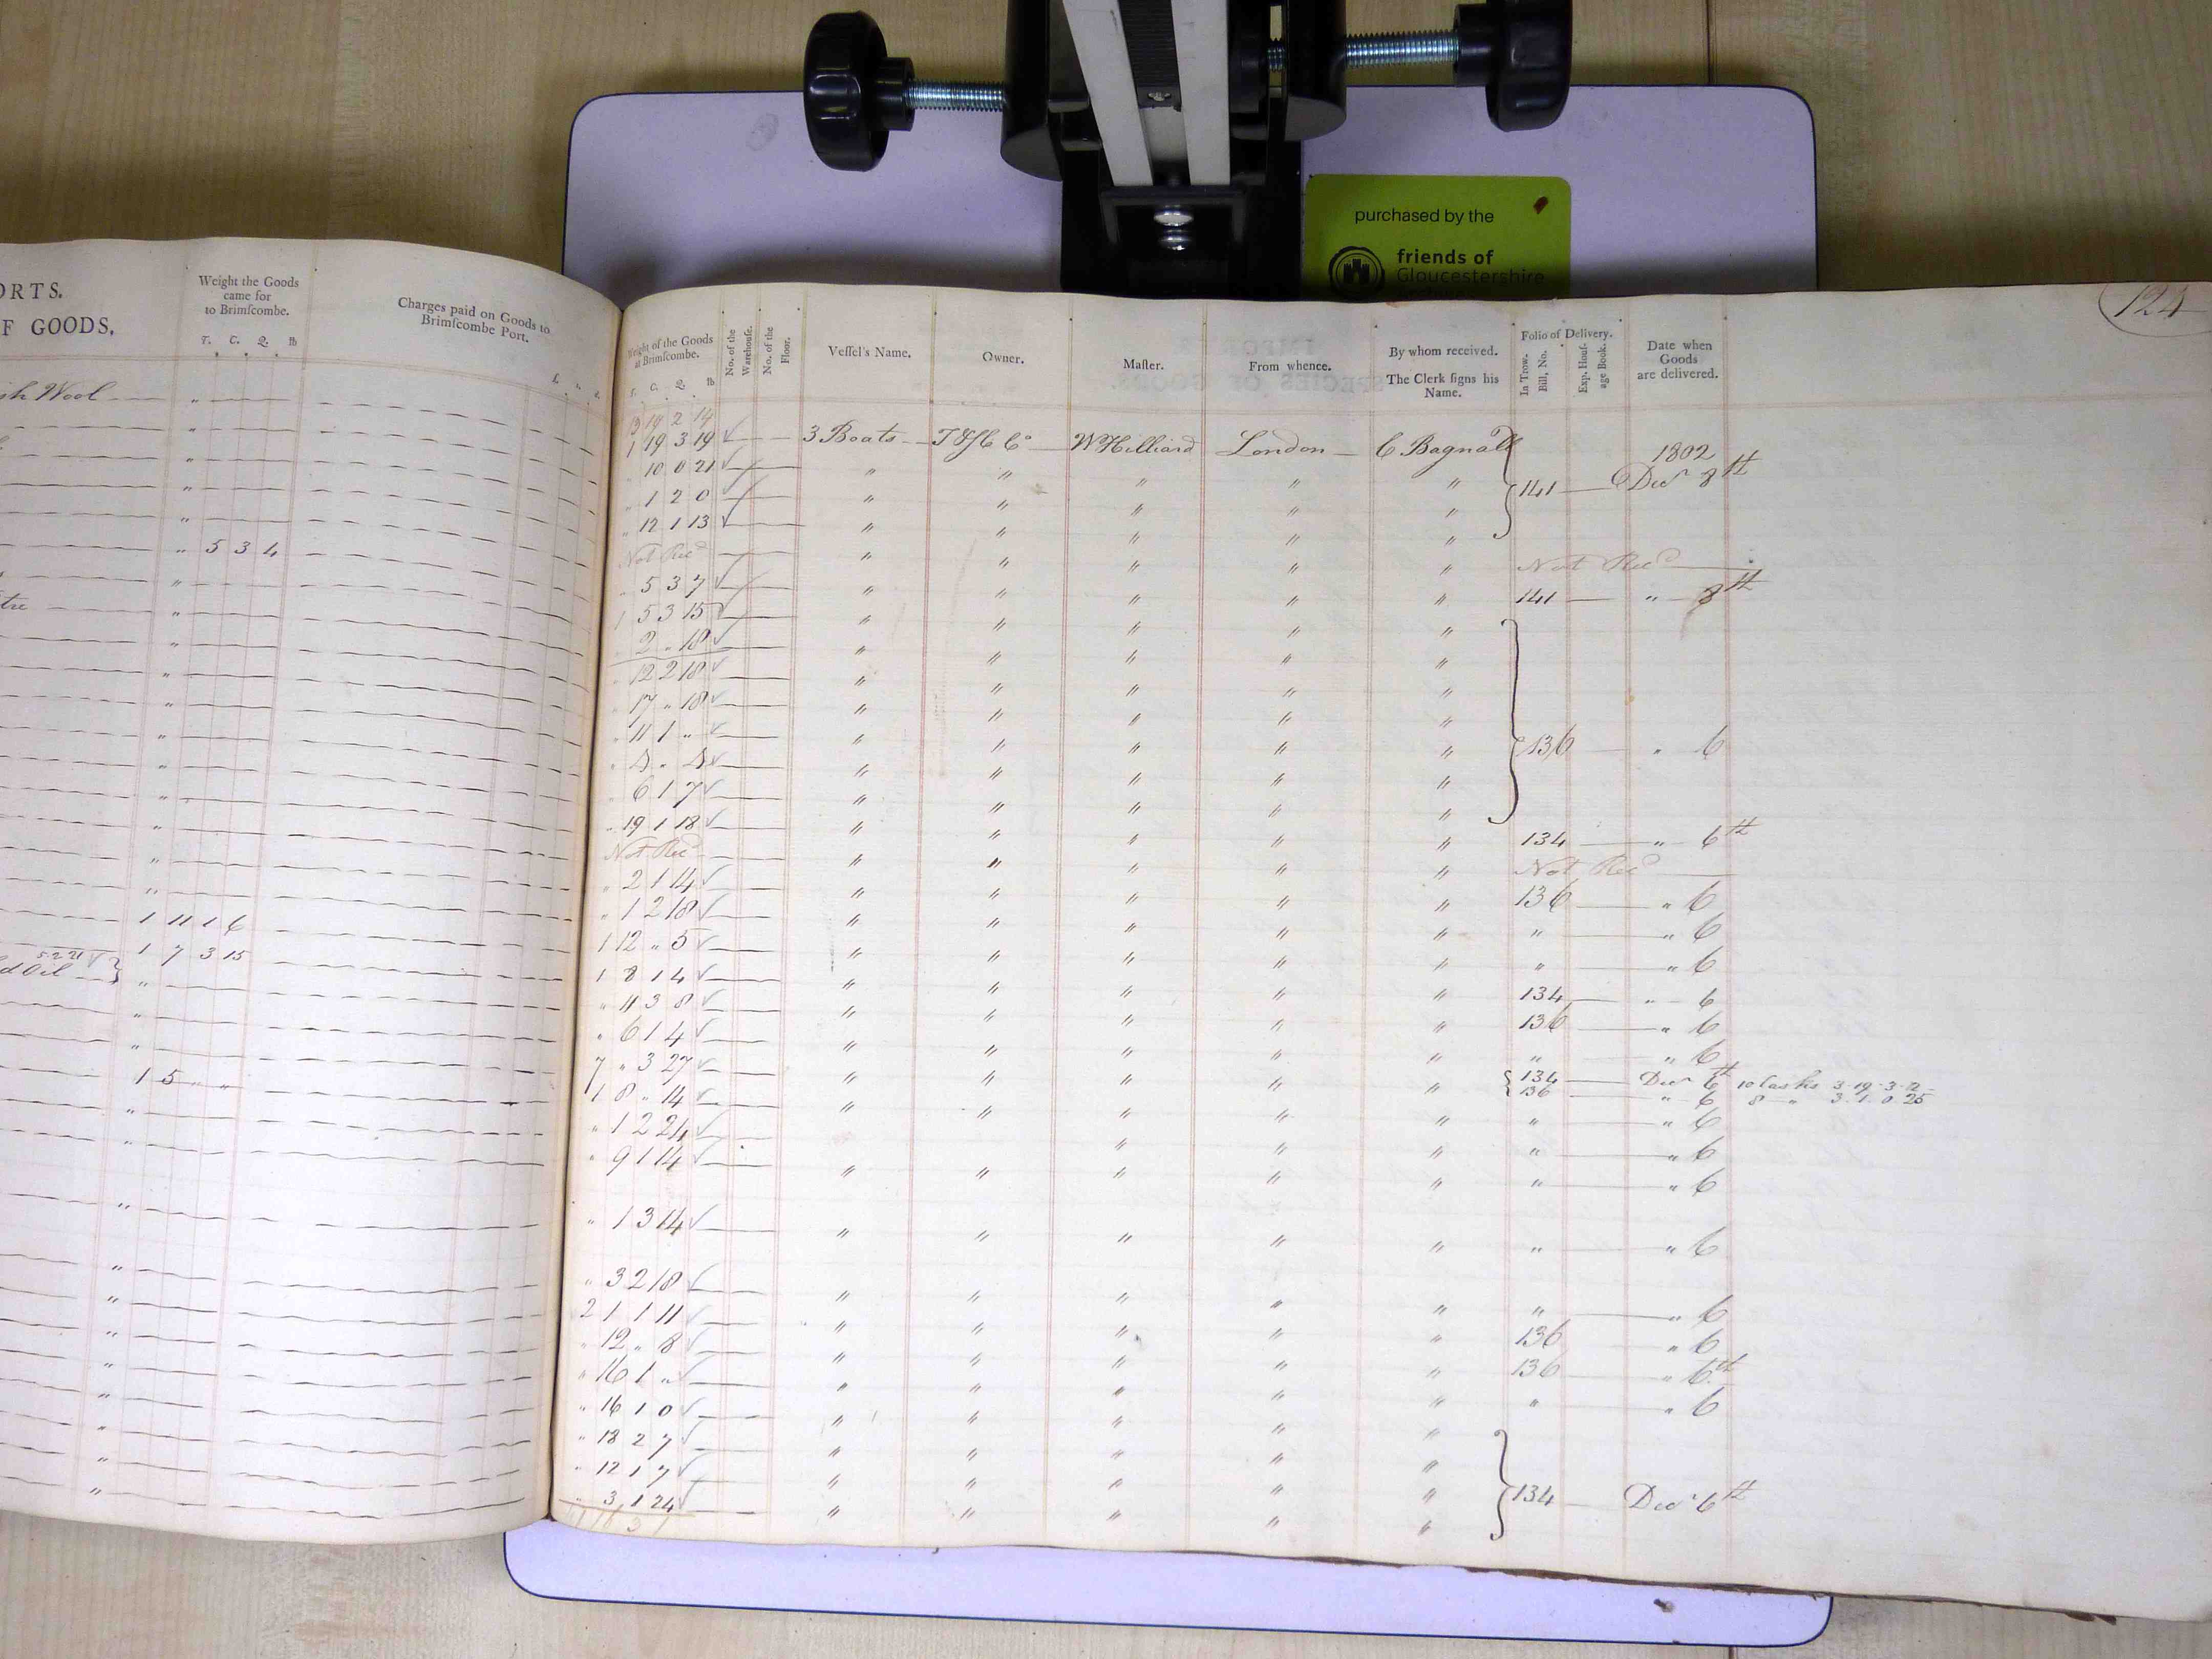 purchased by the
friends of
Gloucestershire
ORTS.
F GOODS.
Weight the Goods
came for
to Brimſcombe.
T. C. Q. lb
Charges paid on Goods to
Brimſcombe Port.
£. s. d.
ish Wool
" 5 3 4
tre
1 11 1 6
5 2 21
1 7 3 15
d Oil
1 5 " "
124
Weight of the Goods
at Brimſcombe.
T. C. Q. lb
No. of the
Warehouſe.
No. of the
Floor.
Veſſel's Name.
Owner.
Maſter.
From whence.
By whom received.
The Clerk ſigns his
Name.
Folio of Delivery.
In Trow.
Bill, No.
Exp. Houſ-
age Book.
Date when
Goods
are delivered.
19 2 14
1 19 3 19 3 Boats W Hilliard London C Bagnall
1802
" 10 0 21 " " " " "
" 1 2 0 " " " " " 141 Decr 8th
" 12 1 13 " " " " "
Not Recd " " " " " Not Recd
" 5 3 7 " " " " " 141 " 8th
1 5 3 15 " " " " "
" 2 " 18 " " " " "
" 12 2 18 " " " " "
" 17 " 18 " " " " "
" 11 1 " " " " " " 136 " 6
" 4 " 4 " " " " "
" 6 1 7 " " " " "
" 19 1 18 " " " " " 134 " 6th
Not Recd " " " " " Not Recd
" 2 1 14 " " " " " 136 " 6
" 1 2 18 " " " " " " " 6
1 12 " 5 " " " " " " " 6
1 8 1 4 " " " " " 134 " 6
" 11 3 8 " " " " " 136 " 6
" 6 1 4 " " " " " " " 6
7 " 3 27 " " " " " 134 Decr 6th 10 Casks 3 - 19 - 3 - 12
136 " 6 8 " 3 . 1 . 0 . 25
1 8 " 14 " " " " " " " 6
" 1 2 24 " " " " 6
" 9 1 14 " " " " " " " 6
" 1 3 14 " " " " " " " 6
" 3 2 18 " " " " " " " 6
2 1 1 11 " " " " " 136 " 6
" 12 " 8 " " " " " 136 " 6th
" 16 1 " " " " " " " " 6
" 16 1 0 " " " " "
" 18 2 7 " " " " "
" 12 1 7 " " " " " 134 Decr 6th
" 3 1 24 " " " " "